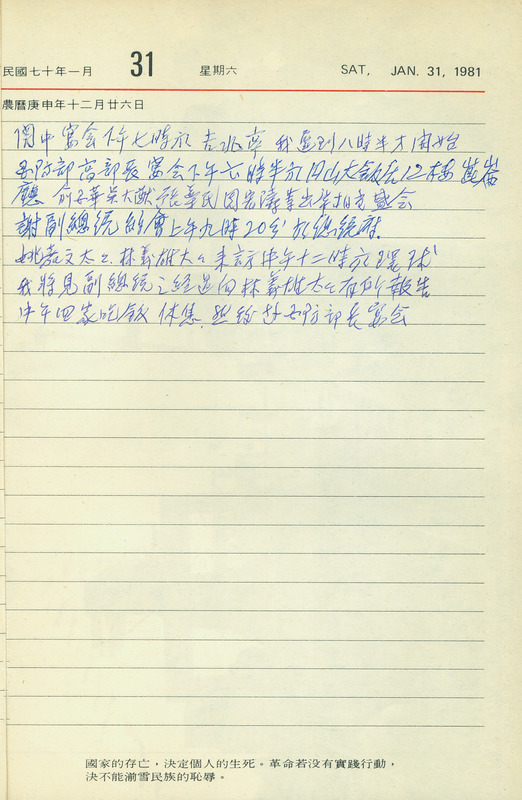 民國七十年一月 31 星期六 SAT, JAN. 31, 1981
農曆庚申年十二月廿六日
中宴会下午七時於 我遲到八時半才開始
国防部高部長宴会下午六時半於円山大飯店12樓崑崙
廳 俞 華吳大猷張 民 盛会
謝副總統約會上午九時20分於總統府
姚嘉文太太 林義雄太太来訪中午十二時於環球
我將見副總統之經過向林義雄太太有所報告
中午回家吃飯休息 赴 防部長宴会
國家的存亡，決定個人的生死。革命若沒有實踐行動，
決不能湔雪民族的恥辱。